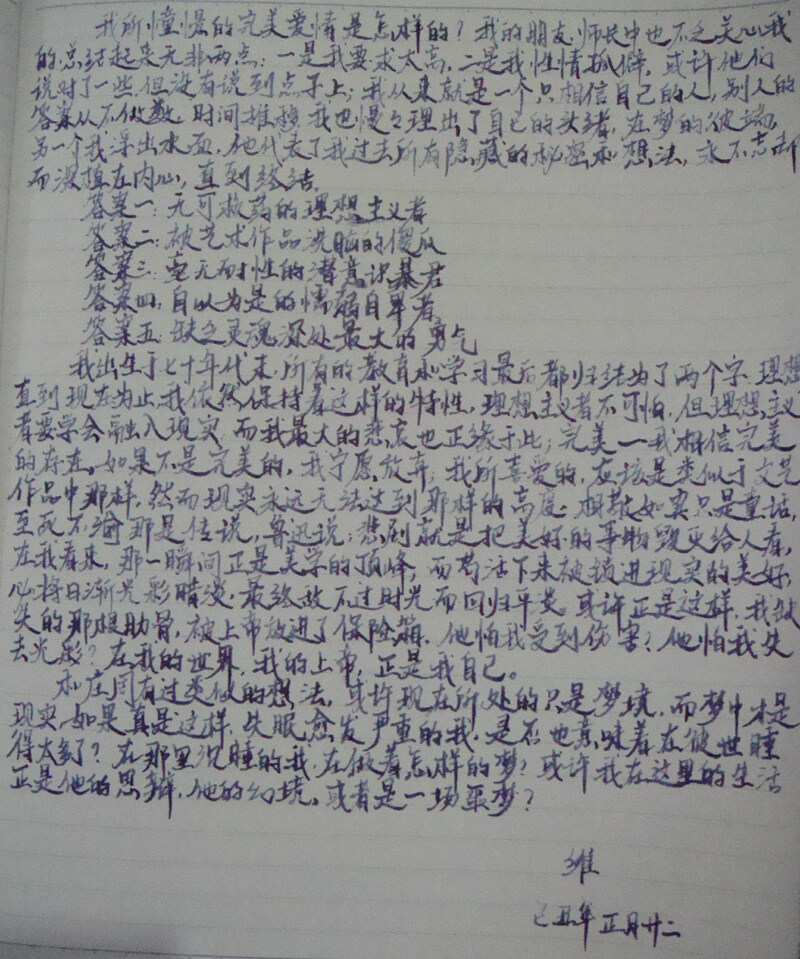 我所憧憬的完美爱情是怎样的？我的朋友、师长中也不乏关心我
的，总结起来无非两点：一是我要求太高，二是我性情孤僻，或许他们
说对了一些，但没有说到点子上；我从来就是一个只相信自己的人，别人的
答案从不做数，时间推移我也慢々理出了自己的头绪，在梦的彼端，
另一个我浮出水面，他代表了我过去所有隐藏的秘密和想法，永不忘却
而深植在内心，直到终结。
答案一：无可救药的理想主义者
答案二：被艺术作品洗脑的傻瓜
答案三：毫无耐性的潜意识暴君
答案四：自以为是的懦弱自卑者
答案五：缺乏灵魂深处最大的勇气
我出生于七十年代末，所有的教育和学习最后都归结为了两个字：理想
直到现在为止，我依然保持着这样的特性，理想主义者不可怕，但理想主义
者要学会融入现实，而我最大的悲哀也正缘于此；完美——我相信完美
的存在。如果不是完美的，我宁愿放弃，我所喜爱的，应该是类似于文艺
作品中那样，然而现实永远无法达到那样的高度。相敬如宾只是童话，
至死不渝那是传说，鲁迅说：悲剧就是把美好的事物毁灭给人看，
在我看来，那一瞬间正是美学的顶峰，而苟活下来被锁进现实的美好，
必将日渐光彩暗淡，最终敌不过时光而回归平芜。或许正是这样，我缺
失的那根肋骨，被上帝放进了保险箱，他怕我受到伤害？他怕我失
去光彩？在我的世界，我的上帝，正是我自己。
和庄周有过类似的想法，或许现在所处的只是梦境，而梦中才是
现实，如果真是这样，失眠愈发严重的我，是否也意味着在彼世睡
得太多了？在那里沉睡的我，在做着怎样的梦？或许我在这里的生活
正是他的思辩，他的幻境，或者是一场噩梦？
维
己丑年 正月廿二